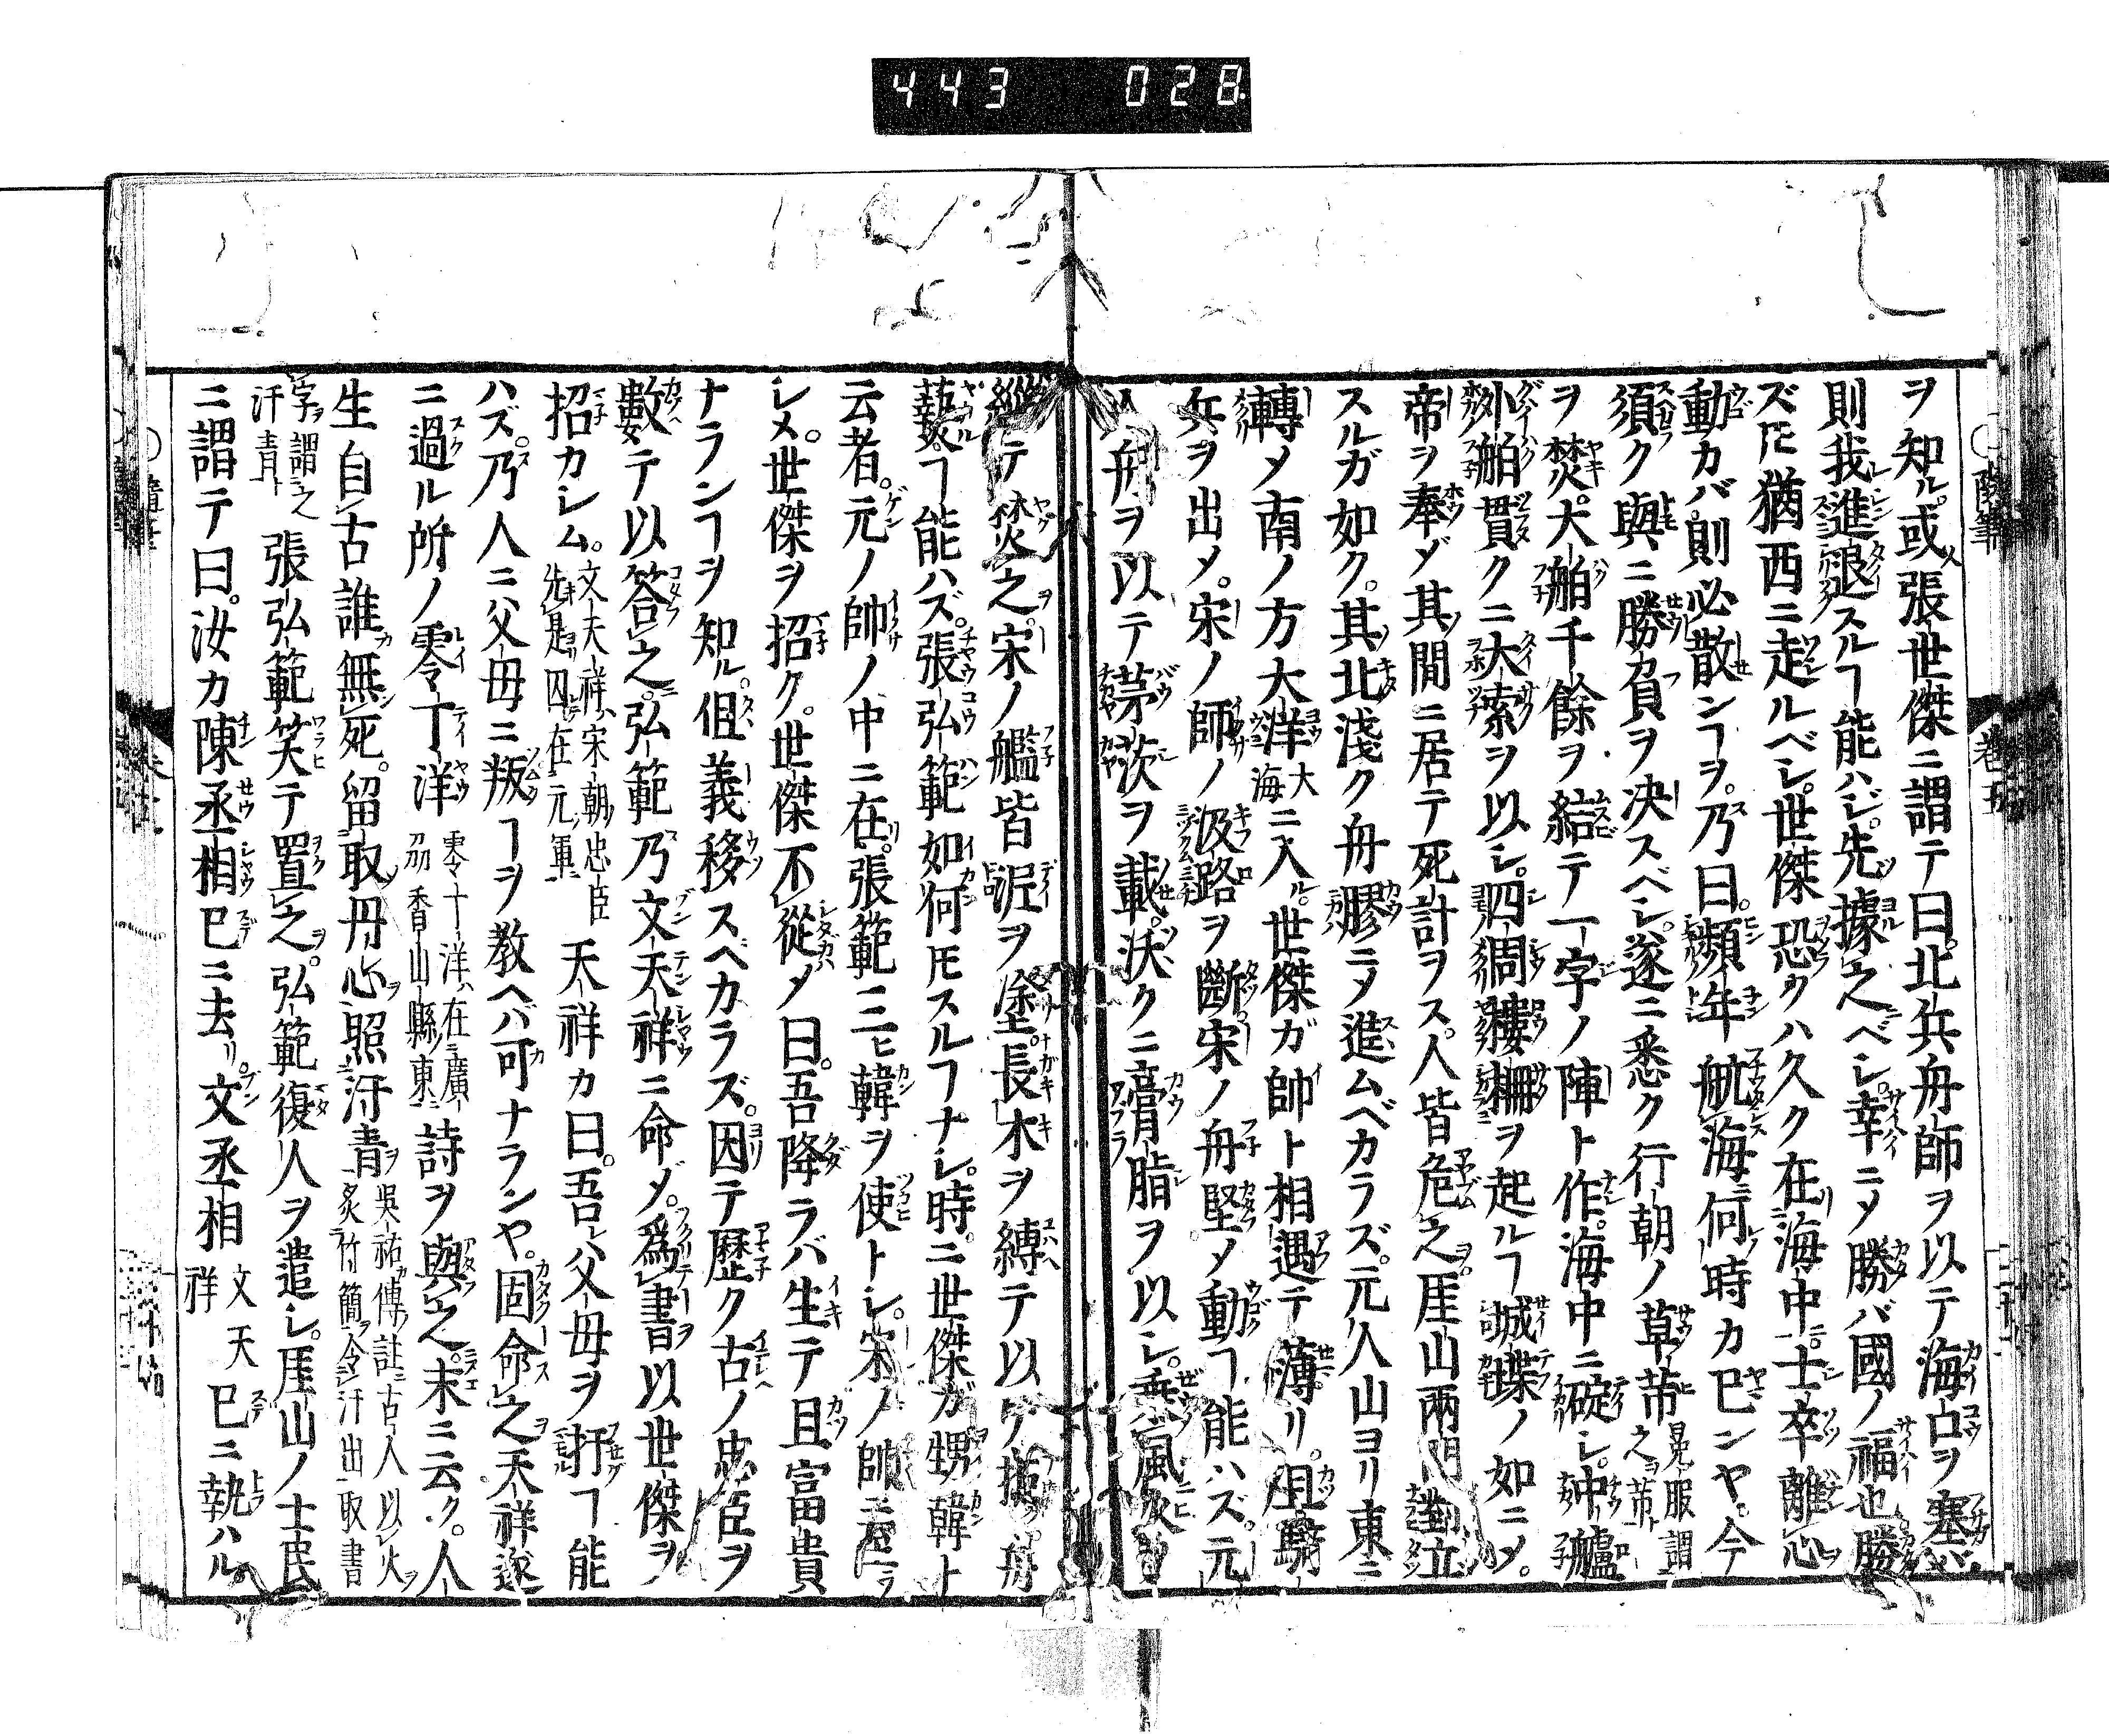 443 028
ヲ知ル。或張世傑ニ謂テ曰。北兵舟師ヲ以テ海口ヲ塞バ
則我進退スルヿ能ハジ。先據之ベシ。幸ニメ勝バ國ノ福也勝
ズトモ猶西ニ走ルベシ。世傑恐クハ久ク在海中士卒離心
動カバ則必散ンヿヲ。乃曰。頻年航海何時カ已ンヤ。今
須ク與ニ勝負ヲ決スベシ。遂ニ悉ク行朝ノ草芾
ヲ焚。大舶千餘ヲ結テ一字ノ陣ト作。海中ニ碇シ。中艫
外舶貫クニ大索ヲ以シ。四周樓柵ヲ起ルヿ城堞ノ如ニメ。
帝ヲ奉ジ其間ニ居テ死計ヲス。人皆危之。厓山兩門對立
スルガ如ク。其北淺ク舟膠ニメ進ムベカラズ。元人山ヨリ東ニ
轉メ南ノ方大洋大海ニ入ル。世傑ガ帥ト相遇テ薄リ。且騎
兵ヲ出メ。宋ノ師ノ汲路ヲ斷。宋ノ舟堅メ動ヿ能ハズ。元
人舟ヲ以テ茅茨ヲ載。沃クニ膏脂ヲ以シ。乗風
縱テ焚之。宋ノ艦皆泥ヲ塗。長木ヲ縛テ以テ舟
爇ヿ能ハズ。張弘範如何トモスルヿナシ。時ニ世傑ガ甥韓ト
云者。元ノ帥ノ中ニ在。張範三ヒ韓ヲ使トシ。宋ノ帥ニ
シメ。世傑ヲ招ク。世傑不從メ曰。吾降ラバ生テ且富貴
ナランヿヲ知ル。但義移スベカラズ。因テ歴ク古ノ忠臣ヲ
數テ以答之。弘範乃文天祥ニ命ジ。爲書以世傑ヲ
招カシム。文天祥ハ宋朝ノ忠臣先是囚在元軍 天祥カ曰。吾父母ヲ扞ヿ能
ハズ。乃人ニ父母ニ叛ヿヲ教ヘバ可ナランヤ。固命之天祥遂
ニ過ル所ノ零丁洋零丁洋ハ在廣刕香山縣東詩ヲ與之。末ニ云ク。人
生自古誰無死。留取丹心照汗青呉祐傳註古人以火炙竹簡令汗出取書
字謂之汗青 張弘範笑テ置之。弘範復人ヲ遣シ。厓山ノ士民
ニ謂テ曰。汝カ陳丞相已ニ去リ。文丞相文天祥已ニ執ハル